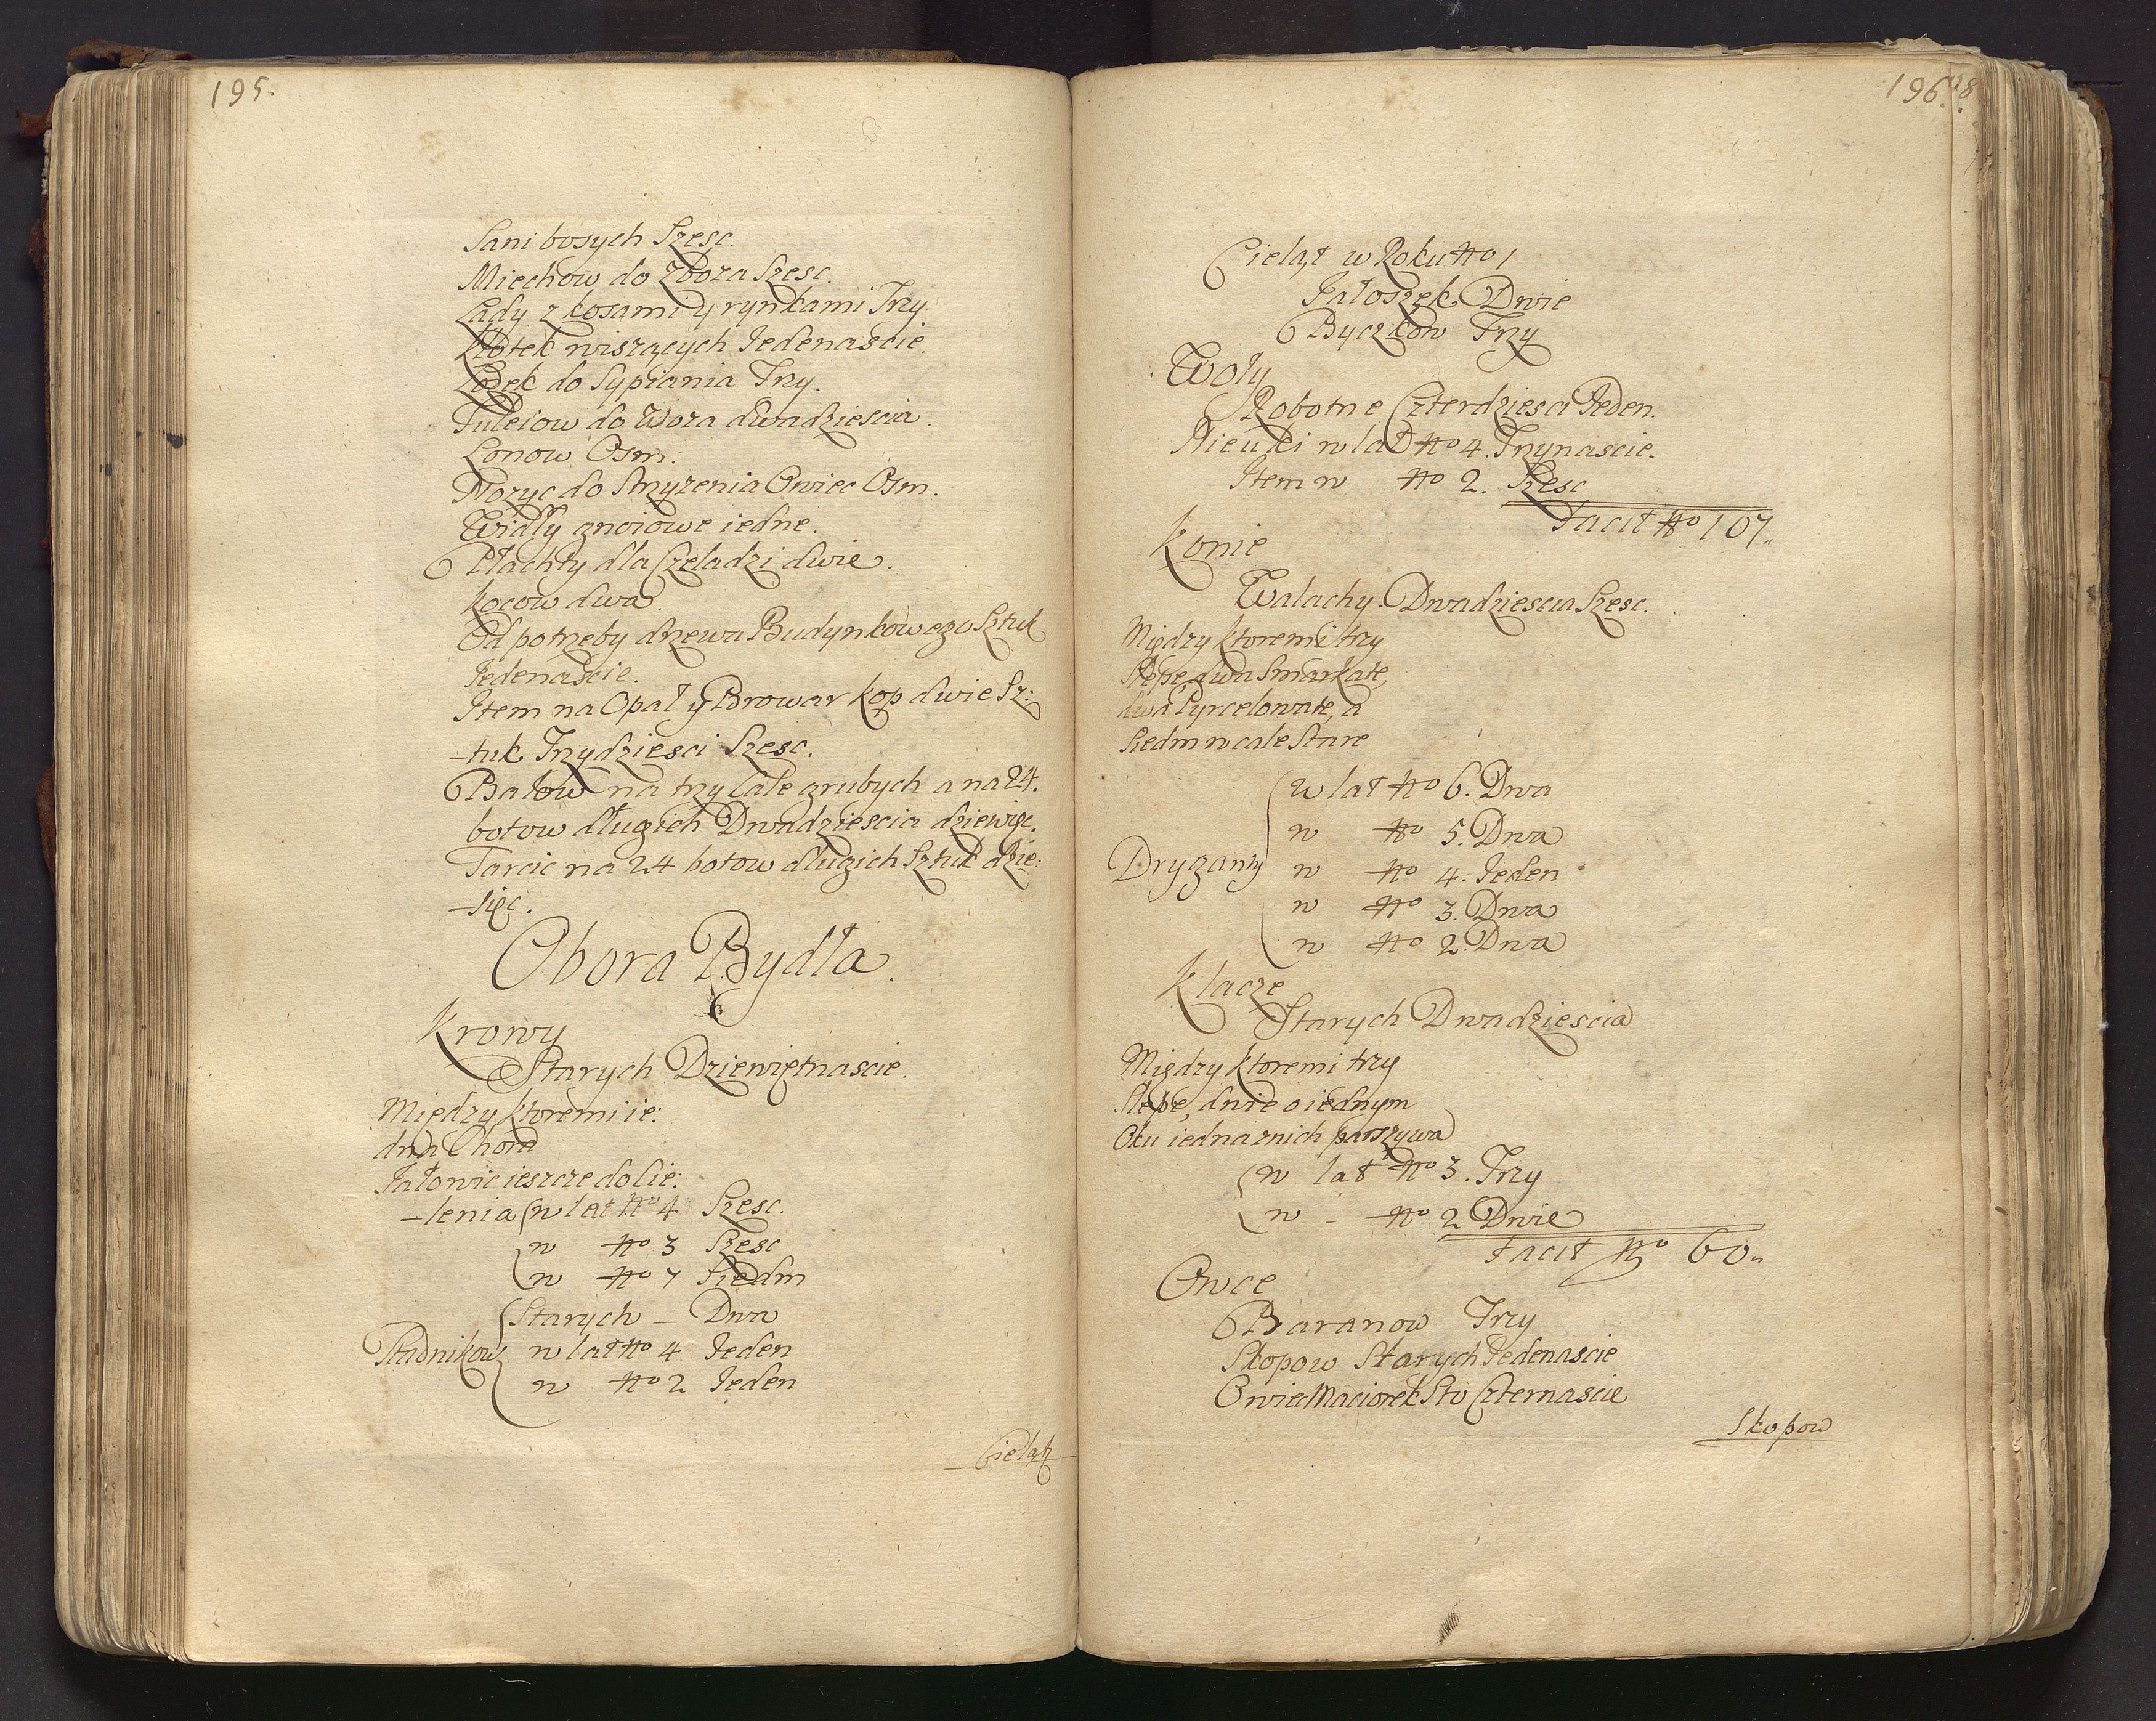 195.
Sani bosych Szesc.
Miechow do Zboza Szesc.
Lady z kosami y rynkami Trzy.
Kłotek wiszących Jedenascie.
Łozek do Sypiania Trzy.
Tuleiow do Woza dwadziescia.
Lonow Osm.
Nozyc do Strzyzenia Owiec Osm.
Widły gnoiowe iedne.
Płachty dla Czeladzi dwie.
Kocow dwa.
Od potrzeby drzewa Budynkowego Sztuk
Jedenascie.
Item na Opał y Browar kop dwie Sz:
-tuk Trzydziesci Szesc.
Balow na trzy Cale grubych a na 24.
botow długich Dwadziescia dziewięc.
Tarcic na 24 botow długich Sztuk dzie:
-sięc.
Obora Bydła.
Krowy
Starych Dziewiętnascie.
Między ktoremi ie:
dna Chora
Jałowic ieszcze do Cie:
-lenia w lat No 4 Szesc.
w No 3 Szesc
w No 7 Siedm
Starych - Dwa
Stadnikow w lat No 4 Jeden
w No 2 Jeden
Cieląt
196.
Cieląt w Roku No 1
Jałoszek Dwie
Byczkow Trzy
Woły
Robotne Czterdziesci Jeden.
Nieuki w lat No 4. Trzynascie.
Item w No 2. Szesc
Facit No 107.
Konie
Walachy Dwadziescia Szesc.
Między ktoremi trzy
Slepe dwa Smarkate,
dwa Pyrcelowate, a
Siedm w cale Stare
w lat No 6. Dwa
w No 5. Dwa
Dryganty w No 4. Jeden
w No 3. Dwa
w No 2. Dwa
Klacze
Starych Dwadziescia
Między ktoremi trzy
Slepe, dwie o iednym
Oku iedna z nich parszywa
w lat No 3. Trzy
w - No 2 Dwie
Facit No 60.
Owce
Baranow Trzy
Skopow Starych Jedenascie
Owiec Maciorek Sto Czternascie
Skopow